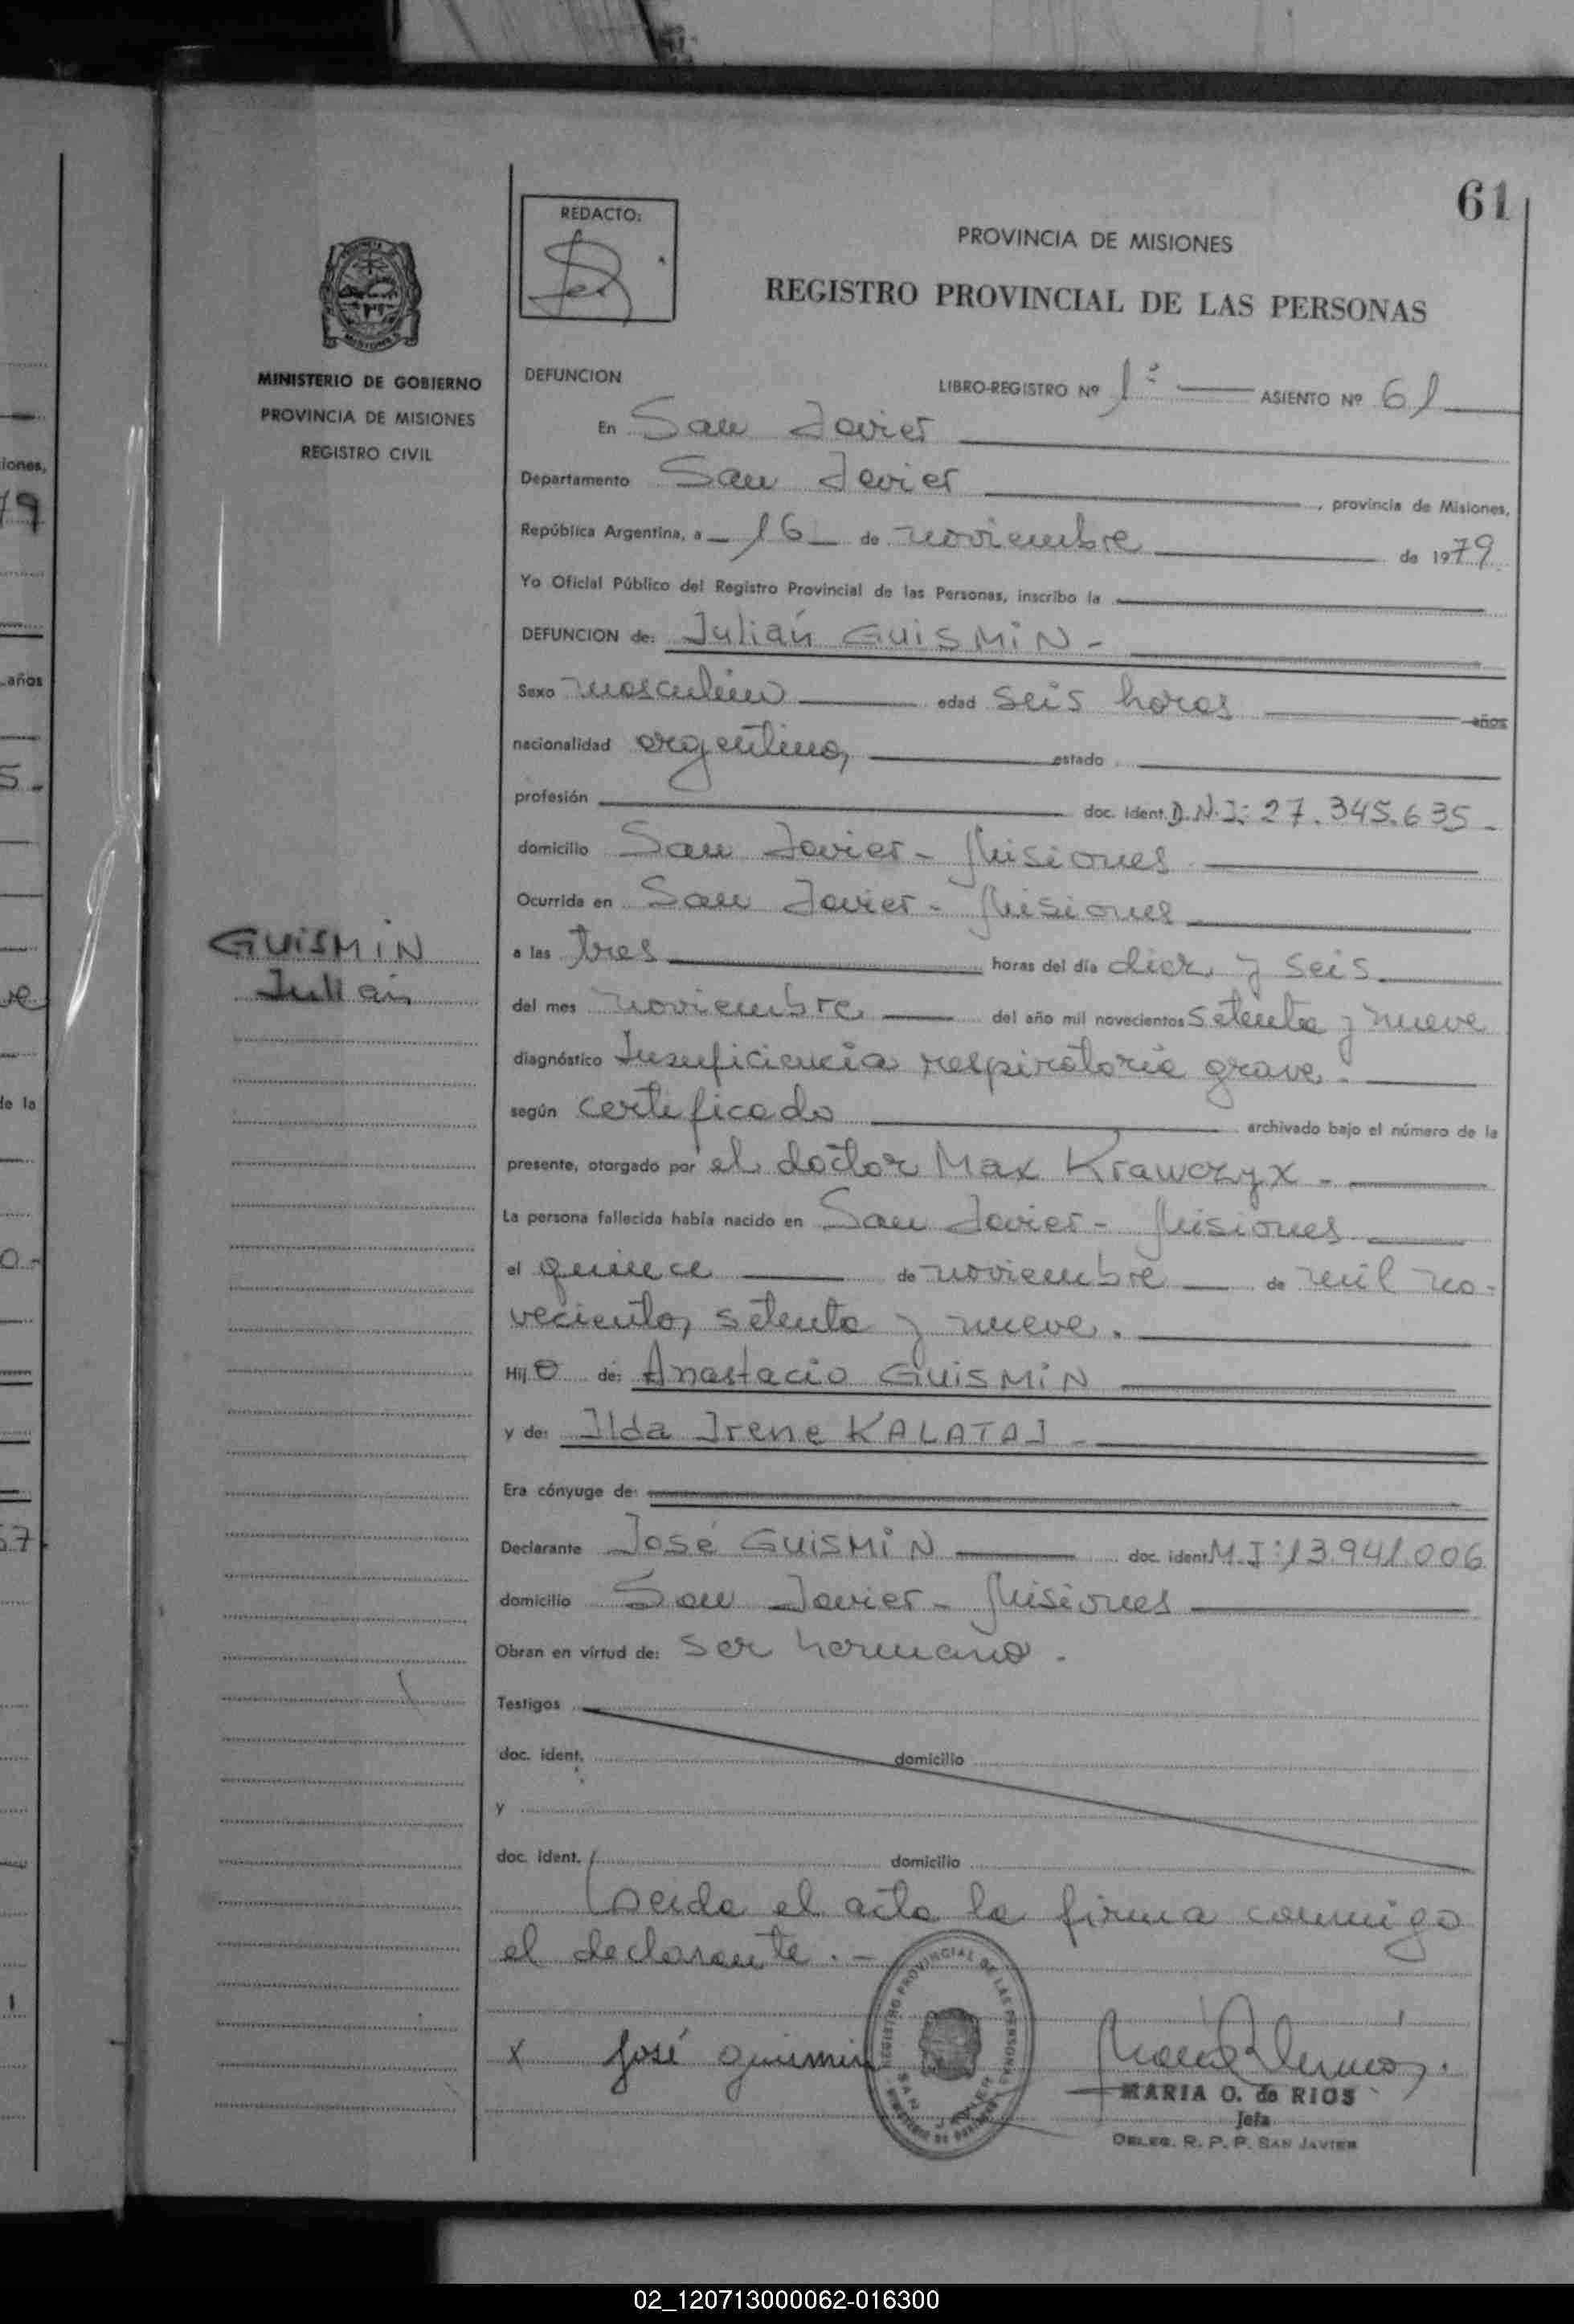 61
REDACTO:
PROVINCIA DE MISIONES
REGISTRO PROVINCIAL DE LAS PERSONAS
MINISTERIO DE GOBIERNO
PROVINCIA DE MISIONES
REGISTRO CIVIL
DEFUNCION
LIBRO-REGISTRO Nº 1º ASIENTO Nº 61
En San Javier
Departamento San Javier, provincia de Misiones,
República Argentina, a 16 de noviembre de 1979.
Yo Oficial Público del Registro Provincial de las Personas, inscribo la
DEFUNCION de: Julián GUISMIN -
Sexo masculino edad seis horas años
nacionalidad argentino, estado
profesión doc. ident. D.N.I: 27.345.635 -
domicilio San Javier - Misiones
Ocurrida en San Javier - Misiones
GUISMIN
Julián
a las tres horas del día diez y seis
del mes noviembre del año mil novecientos setenta y nueve
diagnóstico Insuficiencia respiratoria grave.
según certificado archivado bajo el número de la
presente, otorgado por el doctor Max Krawczyx -
La persona fallecida había nacido en San Javier - Misiones
el quince de noviembre de mil no-
vecientos setenta y nueve.
Hijo de: Anastacio GUISMIN
y de: Ilda Irene KALATAJ -
Era cónyuge de:
Declarante José GUISMIN doc. ident. M.I: 13.941.006
domicilio San Javier - Misiones
Obran en virtud de: ser hermano.
Testigos
doc. ident. domicilio
y
doc. ident. domicilio
Leída el acta la firma conmigo
el declarante. -
x José guismin
REGISTRO PROVINCIAL DE LAS PERSONAS
SAN JAVIER
MARIA O. de RIOS
Jefa
DELEG. R. P. P. SAN JAVIER
iones,
79
años
5 -
de la
0 -
57.
1
02_120713000062-016300